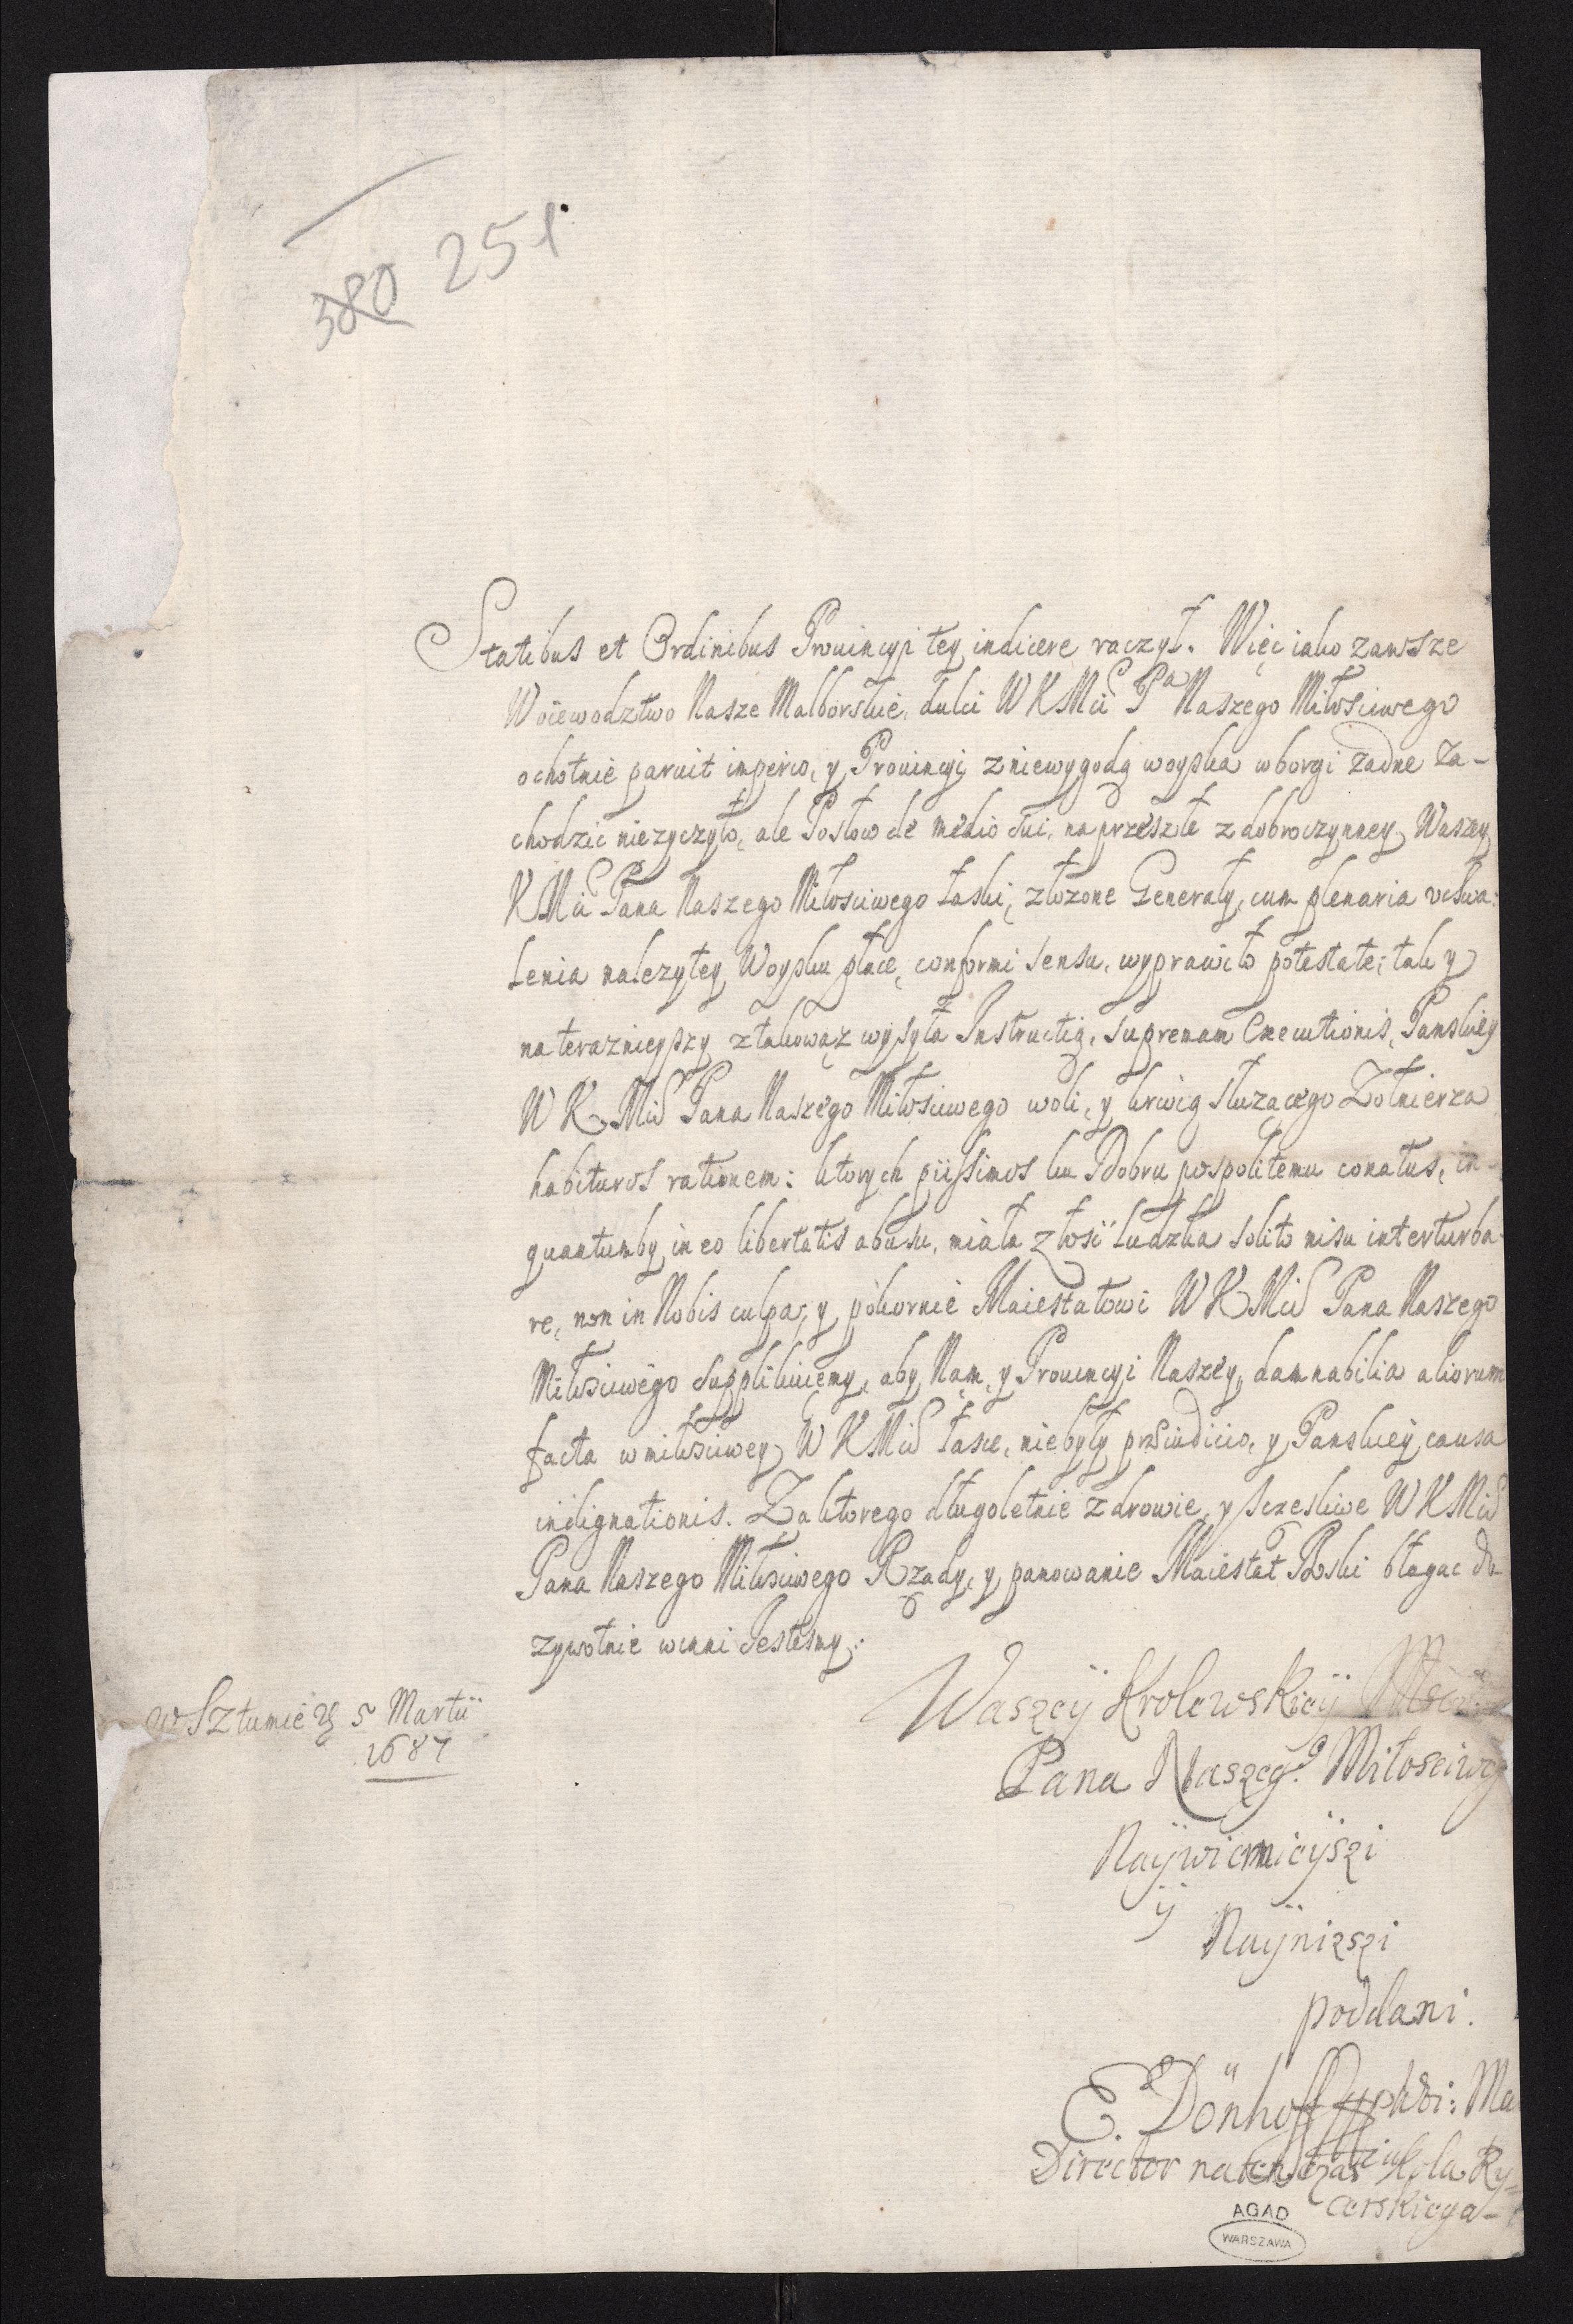 380 251
Statibus et Ordinibus Prouincyi tey indicere raczył. Więc iako zawsze
Woiewodztwo Nasze Malborskie, dulci WKMci Pa Naszego Miłosciwego
ochotnie paruit imperio, y Prouincyi z niewygodą woyska w borgi zadne za-
chodzic niezyczyło, ale Posłow de medio sui, na przeszłe z dobroczynney Waszey
KMci Pana Naszego Miłosciwego łaski, złozone Generały, cum plenaria vchwa:
lenia nalezytey Woysku płace, conformi sensu, wyprawiło potestate; tak y
na teraznieyszy z takowąz wysyła Instructią, supremam Executionis, Panskiey
WKMci Pana Naszego Miłosciwego woli, y krwią słuzącego Zołnierza
habituros rationem: ktorych piissimos ku Dobru pospolitemu conatus, in-
quantumby in eo libertatis abusu, miała złosc ludzka solito nisu interturba-
re, non in Nobis culpa; y pokornie Maiestatowi WKMci Pana Naszego
Miłosciwego supplikuiemy, aby Nam, y Prouincyi Naszey, damnabilia aliorum
facta w miłosciwey WKMci łasce, niebyły præiudicio, y Panskiey causa
indignationis. Za ktorego długoletnie zdrowie, y sczesliwe WKMci
Pana Naszego Miłosciwego Rządy, y panowanie Maiestat Boski błagac do
zywotnie winni Jestesmy.
w Sztumie 5 Martii
1687
Waszey Krolewskiey Mosci
Pana Naszego Miłosciwe
Naywiernieyszi
y
Nayniższi
poddani.
E. Dönhoff
Director natenczas Kola Ry=
cerskiego
AGAD
WARSZAWA